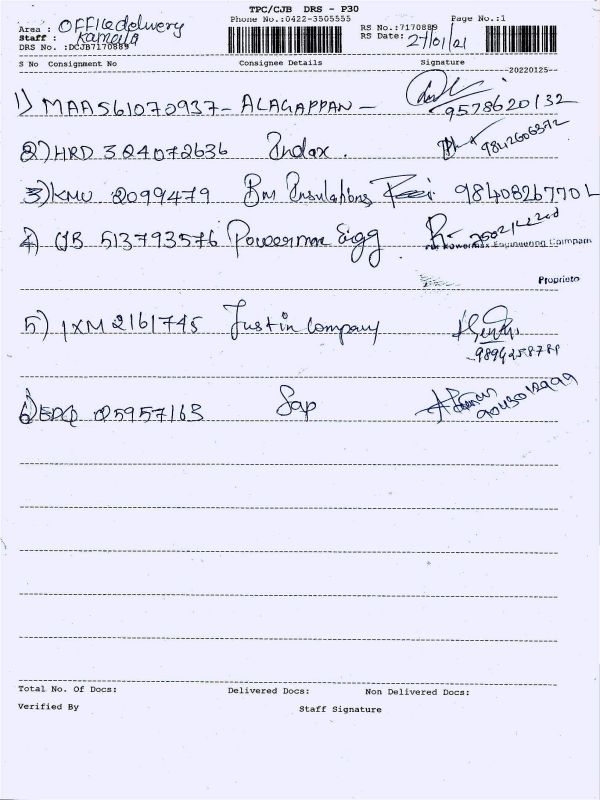 TPC/CJB DRS - P30
Phone No.:0422-3505555
Page No.:1
Area : OFFice delivery
RS No.:7170889
Staff : Kamala
RS Date: 27/01/21
DRS No. :DCJB7170889
S No Consignment No Consignee Details Signature
20220125
1) MAA561070937- ALAGAPPAN -
9578620132
2) HRD 324072636 Indax.
9842606372
3) KMU 2099479 Bm Insulations 9840826770
4) CJB 513793576 Powermax Engg
Engineering Company
Proprieto
5) IXM 2161745 Justin Company
9894258784
6) EDQ 05957163 Sap
9043012999
Total No. Of Docs: Delivered Docs: Non Delivered Docs:
Verified By Staff Signature